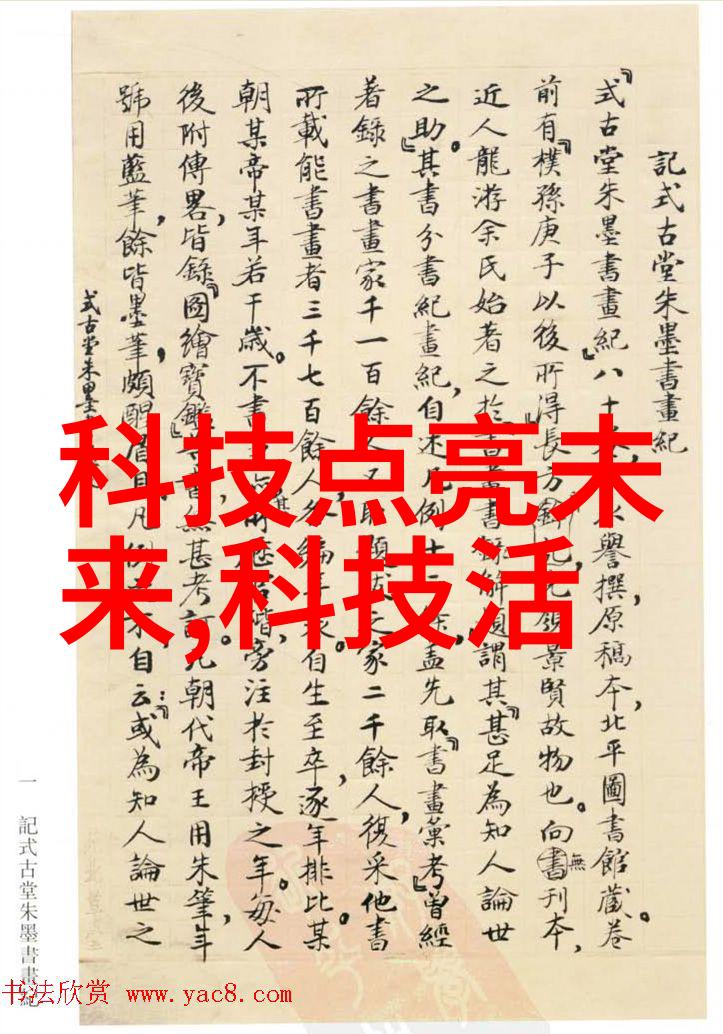 記式古堂朱墨書畫紀
『式古堂朱墨書畫紀』八十
譽撰，原稿本，北平圖書館藏。卷
前有『樸孫庚子以後所得長方
景賢故物也。向無書刊本，
近人龍游余氏始著之於書畫書錄解題，謂其『甚足為知人論世
之助。』其書分書紀畫紀，自述凡例十一條，蓋先取『書畫彙考』曾經
著錄之書畫家千一百餘人，又取
之家二千餘人，復采他書
所載能書畫者三千七百餘人，分編年表。自生至卒，逐年排比，某
朝某帝某年若干歲。不書
皆旁注於封授之年。每人
後附傳畧，皆錄『圖繪寶鑑』
皆無甚考訂。
朝代帝王用朱筆，年
號用藍筆，餘皆墨筆，頗醒眉目。凡例
自云：『或為知人論世之
式古堂朱墨
一 記式古堂朱墨書畫紀
科技点亮未
来,科技活
书法欣赏 www.yac8.com